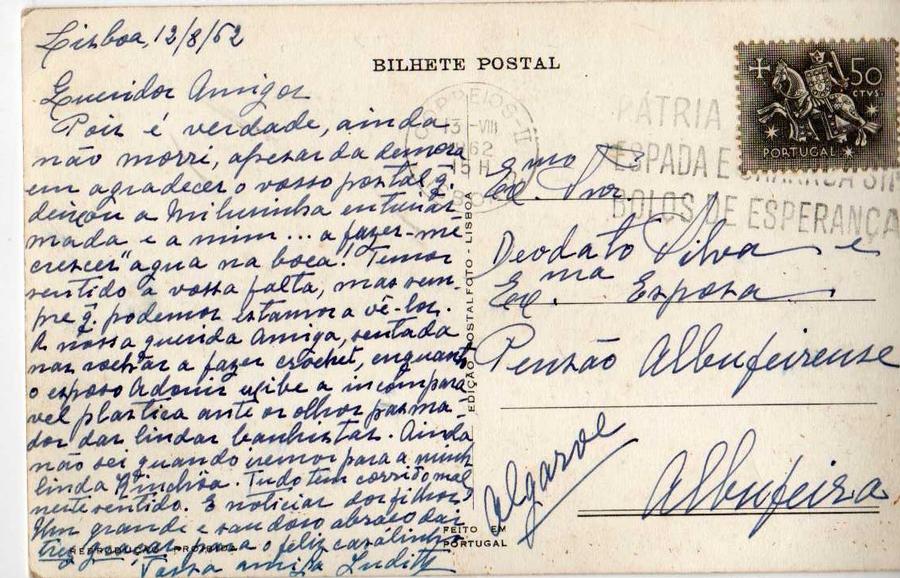 Lisboa, 12/8/62
BILHETE POSTAL
Queridos Amigos
Pois é verdade, ainda
não morri, apesar da demora
em agradecer o vosso postal q.
deixou a Milusinha entusias-
mada e a mim... a fazer-me
crescer "agua na boca! Temos
sentido a vossa falta, mas sem-
pre q. podemos estamos a vê-los.
A nossa querida Amiga, sentada
nas rochas a fazer crochet, enquanto
o esposo Adonis exibe a incompara-
vel plastica ante os olhos pasma-
dos das lindas banhistas. Ainda
não sei quando iremos para a minha
linda. Tudo tem corrido mal
neste sentido. E noticias dos filhos?
Um grande e saudoso abraço das
tres para o feliz casalinho
Vossa amiga Judith
REPRODUÇÃO PROIBIDA
EDIÇÃO POSTALFOTO - LISBOA
FEITO EM
PORTUGAL
CORREIOS - II
13 -VIII
62
15 H
PÁTRIA
ESPADA E
BOLOS DE ESPERANÇA
50
CTVS.
PORTUGAL
Exmo Snr.
Deodato Silva e
Exma Esposa
Pensão Albufeirense
Algarve
Albufeira